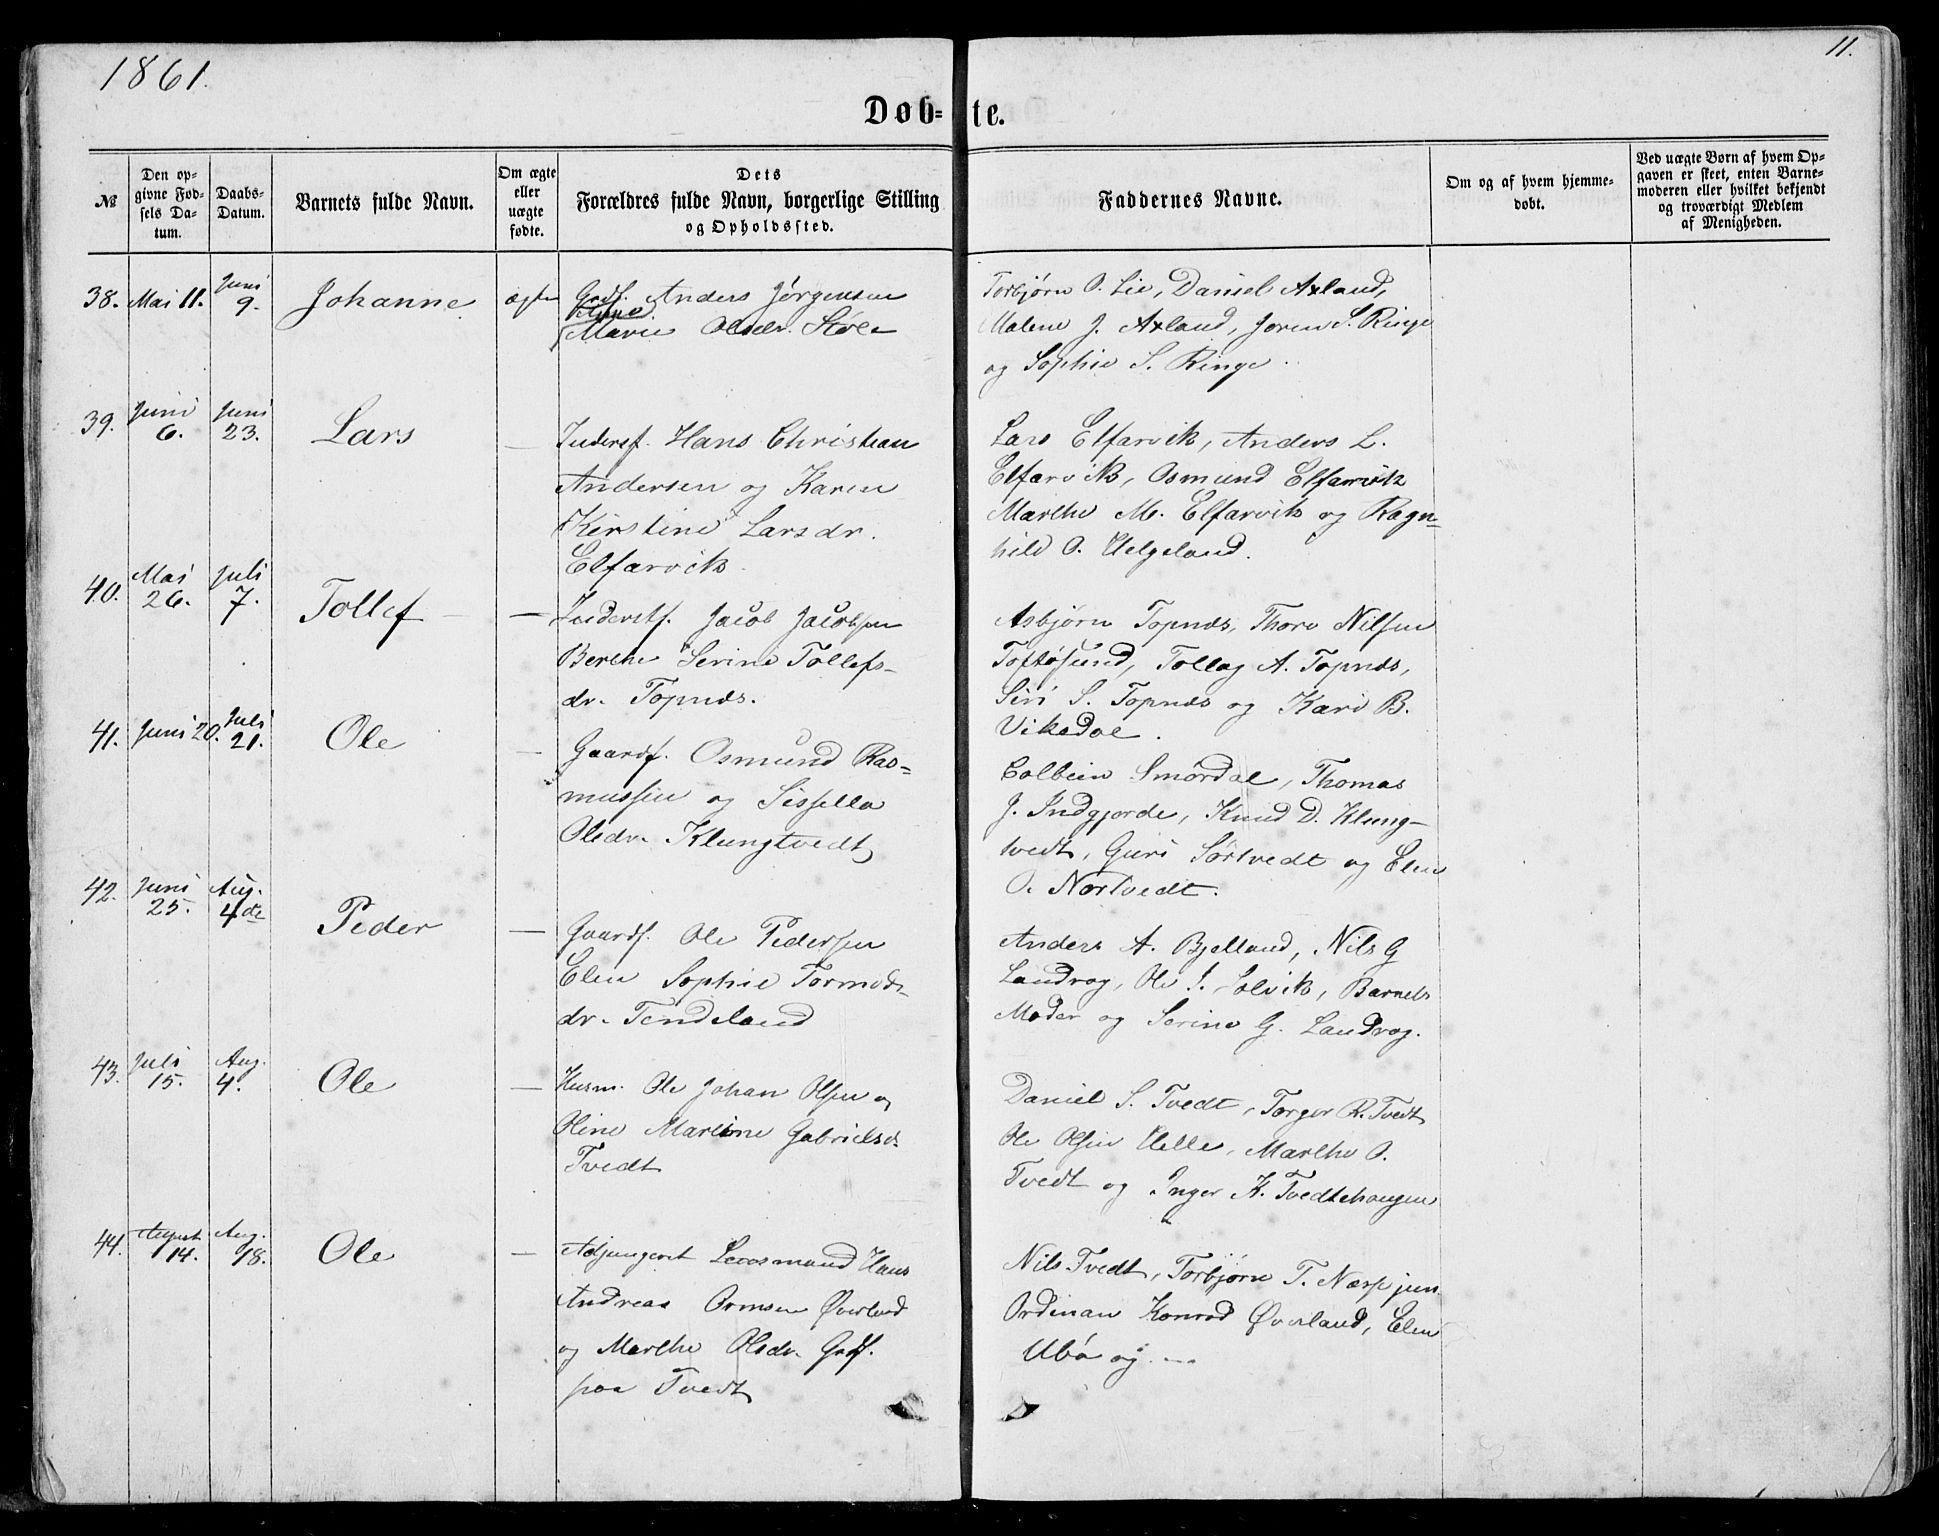 1861.
11.
Døb=te.
№
Den op=
givne Fød=
sels Da=
tum.
Daabs=
Datum.
Barnets fulde Navn.
Om ægte
eller
uægte
fødte.
Dets
Forældres fulde Navn, borgerlige Stilling
og Opholdssted.
Faddernes Navne.
Om og af hvem hjemme=
døbt.
Ved uægte Børn af hvem Op=
gaven er skeet, enten Barne=
moderen eller hvilket bekjendt
og troværdigt Medlem
af Menigheden.
38. Mai 11. Juni 9. Johanne ægte
Grdf. Anders Jørgensen
Marie Olsdr. Støle
Torbjørn O. Lie, Daniel Axland,
Malene J. Axland, Joren S. Ringe
og Sophie S. Ringe.
39. Juni 6. Juni 23. Lars —
Inderst. Hans Christian
Andersen og Karen
Kirstine Larsdr.
Elfarvik.
Lars Elfarvik, Anders L.
Elfarvik, Osmund Elfarvik
Marthe M. Elfarvik og Ragn=
hild O. Helgeland.
40. Mai 26. Juli 7. Tollef —
Inderst. Jacob Jacobsen
Berthe Serine Tollefs-
dr. Topnæs.
Asbjørn Topnæs, Thore Nilsen
Toftøsund, Tollag A. Topnæs,
Siri S. Topnæs og Kari B.
Vikedal.
41. Juni 20. Juli 21. Ole —
Gaardf. Osmund Ras=
mussen og Sissella
Olsdr. Klungtvedt
Colbein Smørdal, Thomas
J. Indgjorde, Knud D. Klung-
tvedt, Guri Sørtvedt og Elen
O. Nortvedt.
42. Juni 25. Aug. 4de Peder —
Gaardf. Ole Pedersen
Elen Sophie Tormods-
dr. Tendeland
Anders A. Bjelland, Nils G
Landrog, Ole J. Solvik, Barnets
Moder og Serine G. Landrog.
43. Juli 15. Aug. 4. Ole —
Husm. Ole Johan Olsen og
Oline Martine Gabrielsd.
Tvedt
Daniel S. Tvedt, Torger R. Tvedt
Ole Olsen Helle, Marthe O.
Tvedt og Inger K. Tvedtehaugen
44. August 14. Aug. 18. Ole —
Adjungeret Lensmand Hans
Andreas Ormsen Øverland
og Marthe Olsdr. Grdf.
paa Tvedt
Nils Tvedt, Torbjørn T. Næss jun.
Ordinan Konrad Øverland, Elen
Ubø og ---